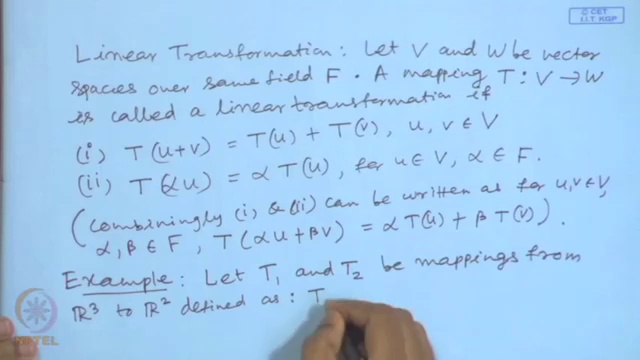 © CET
I.I.T. KGP
Linear Transformation: Let V and W be vector
spaces over same field F. A mapping T: V → W
is called a linear transformation if
(i) T(u+v) = T(u) + T(v), u, v ∈ V
(ii) T(αu) = α T(u), for u ∈ V, α ∈ F.
(Combiningly (i) & (ii) can be written as for u, v ∈ V,
α, β ∈ F, T(αu + βv) = α T(u) + β T(v)).
Example: Let T₁ and T₂ be mappings from
ℝ³ to ℝ² defined as: T
NPTEL